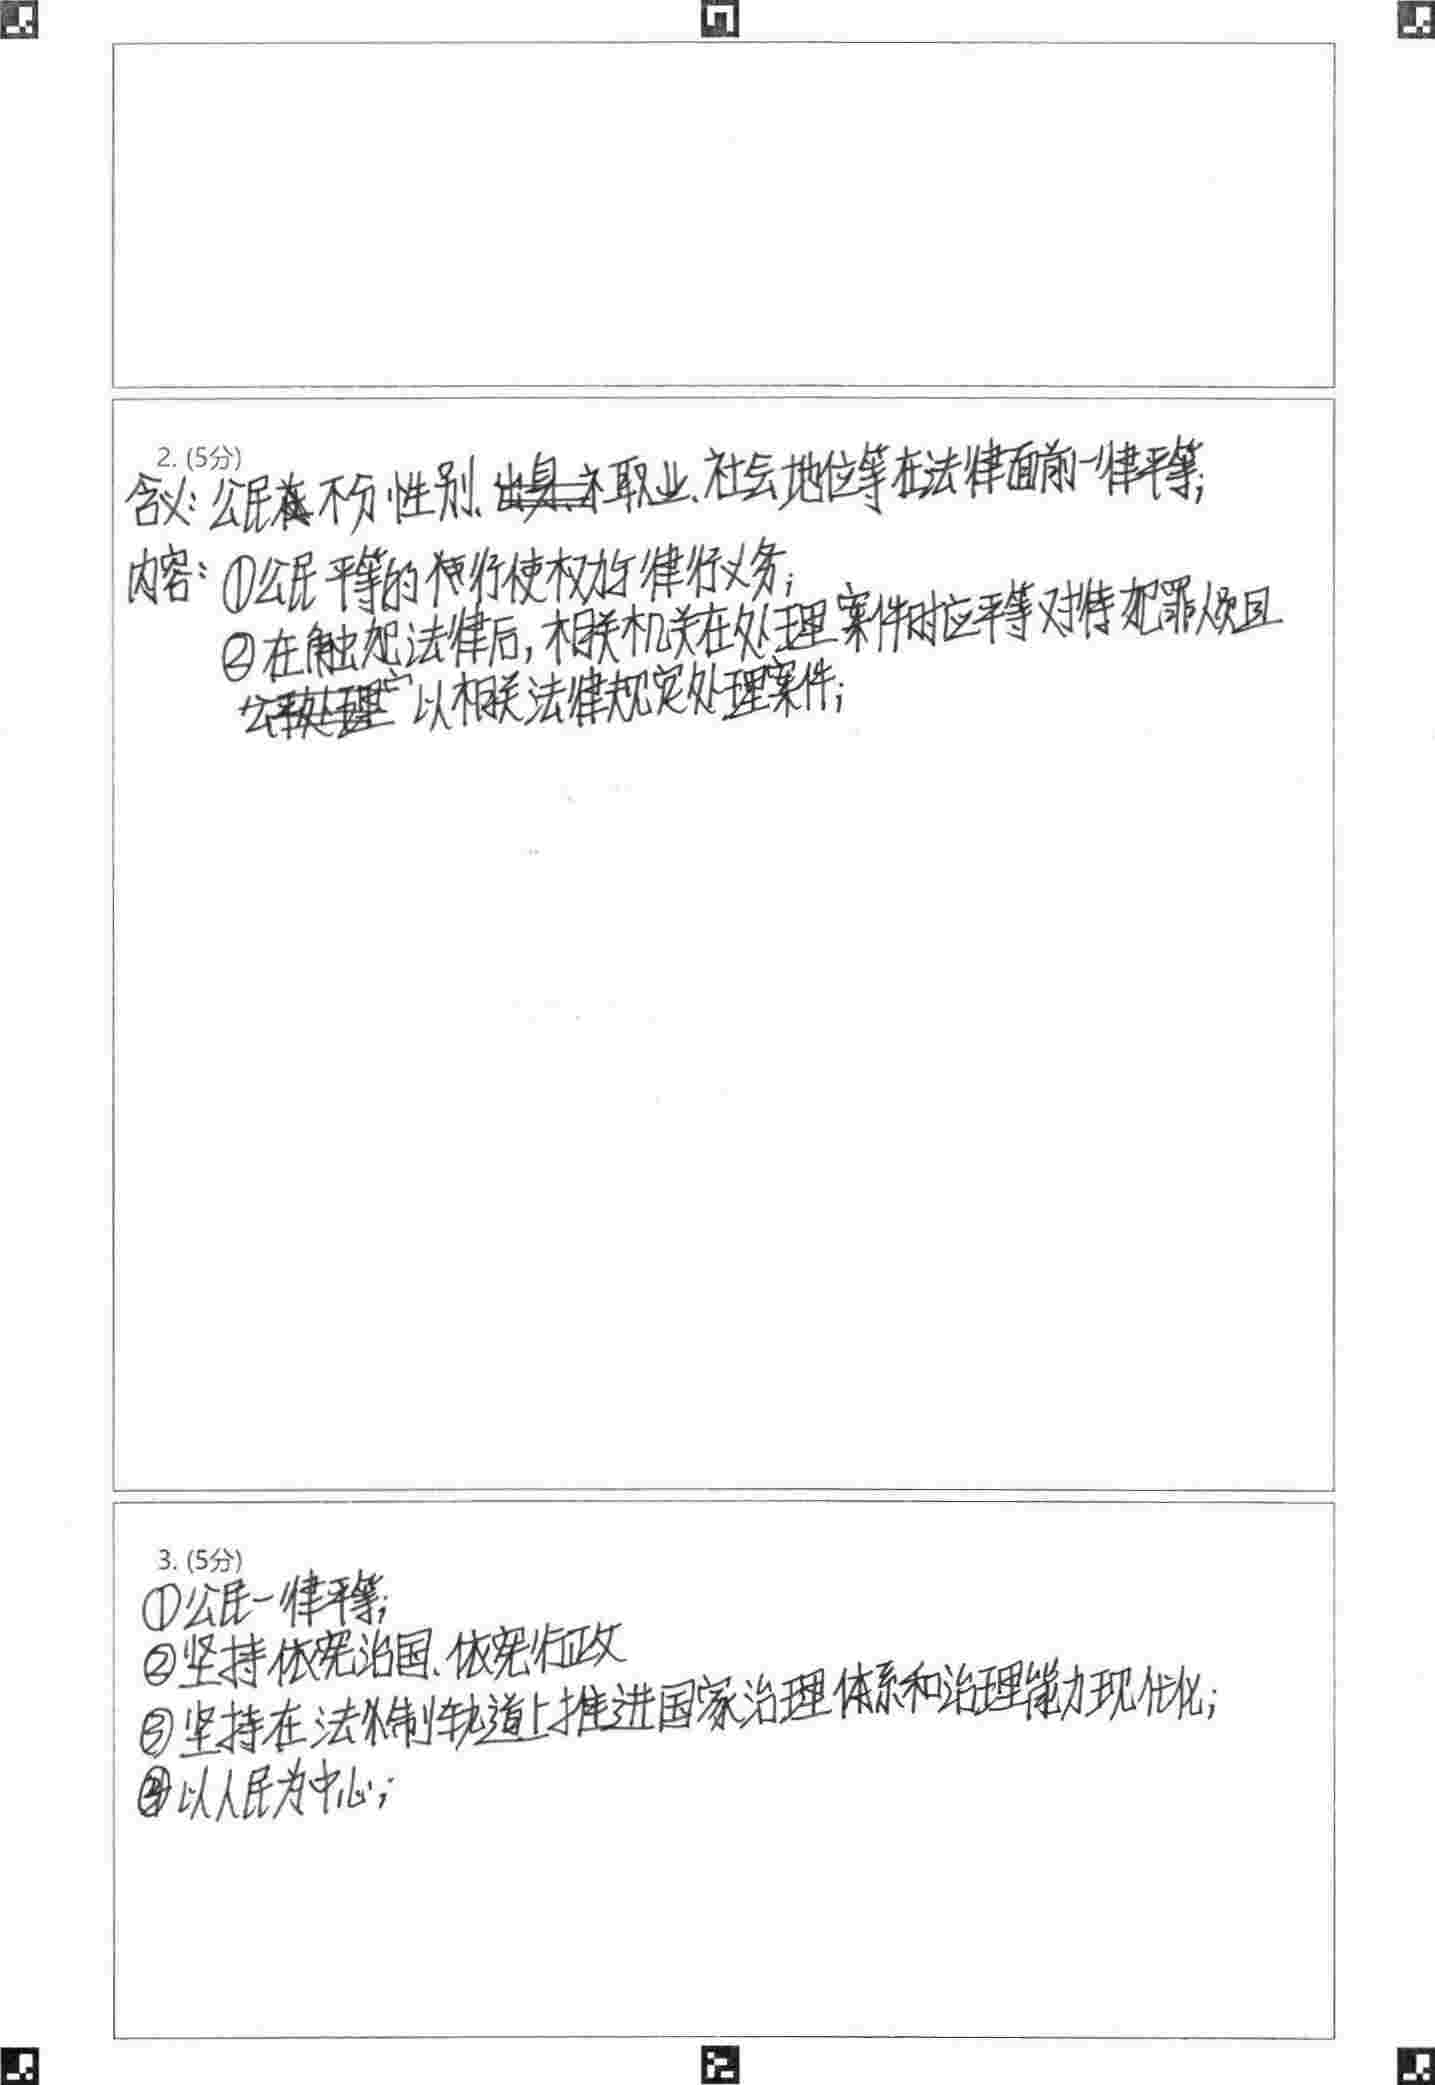 2. (5分)
含义：公民不分性别、职业、社会地位等在法律面前一律平等；
内容：①公民平等的行使权力行义务；
②在触犯法律后，相关机关在处理案件时应平等对待犯罪人员且
以相关法律规定处理案件；
3. (5分)
①公民一律平等；
②坚持依宪治国、依宪行政
③坚持在法制轨道上推进国家治理体系和治理能力现代化；
④以人民为中心；